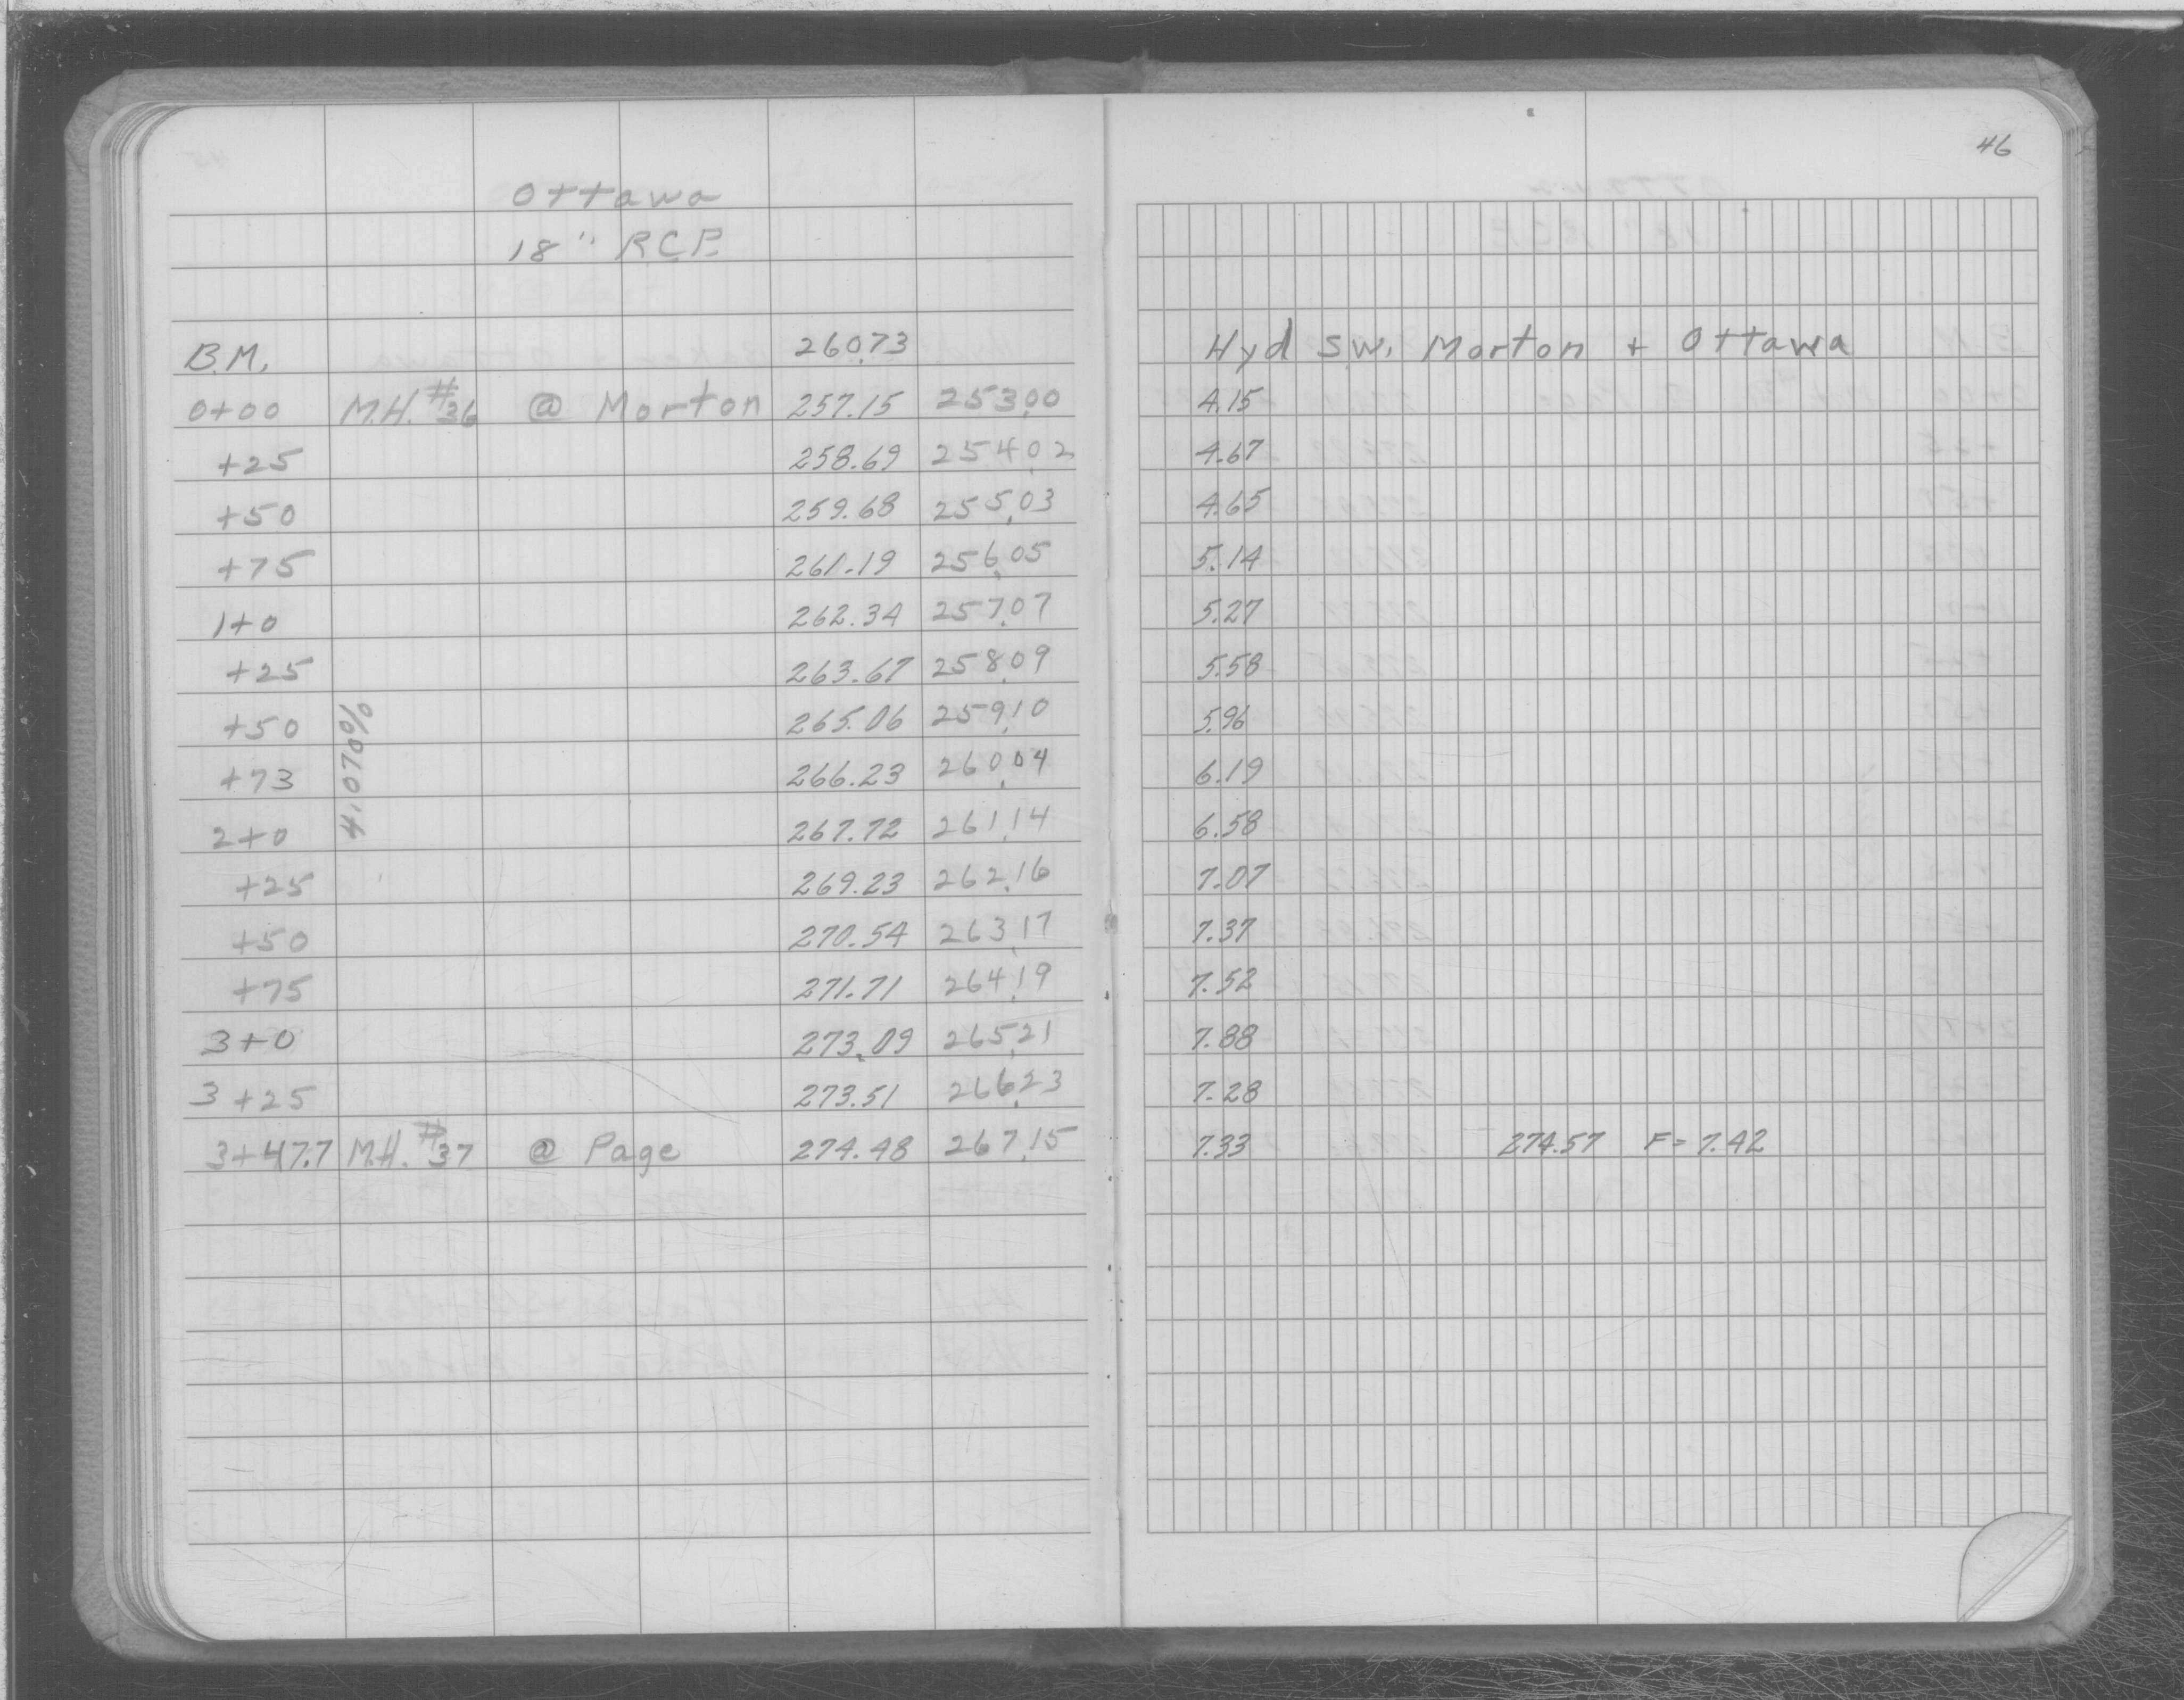 46
Ottawa
18" R.C.P.
B.M. 260.73 Hyd SW. Morton + Ottawa
0+00 M.H. #36 @ Morton 257.15 253.00 4.15
+25 258.69 254.02 4.67
+50 259.68 255.03 4.65
+75 261.19 256.05 5.14
1+0 262.34 257.07 5.27
+25 263.67 258.09 5.58
+50 265.06 259.10 5.96
+73 266.23 260.04 6.19
4.070%
2+0 267.72 261.14 6.58
+25 269.23 262.16 7.07
+50 270.54 263.17 7.37
+75 271.71 264.19 7.52
3+0 273.09 265.21 7.88
3+25 273.51 266.23 7.28
3+47.7 M.H. #37 @ Page 274.48 267.15 7.33 274.57 F= 7.42